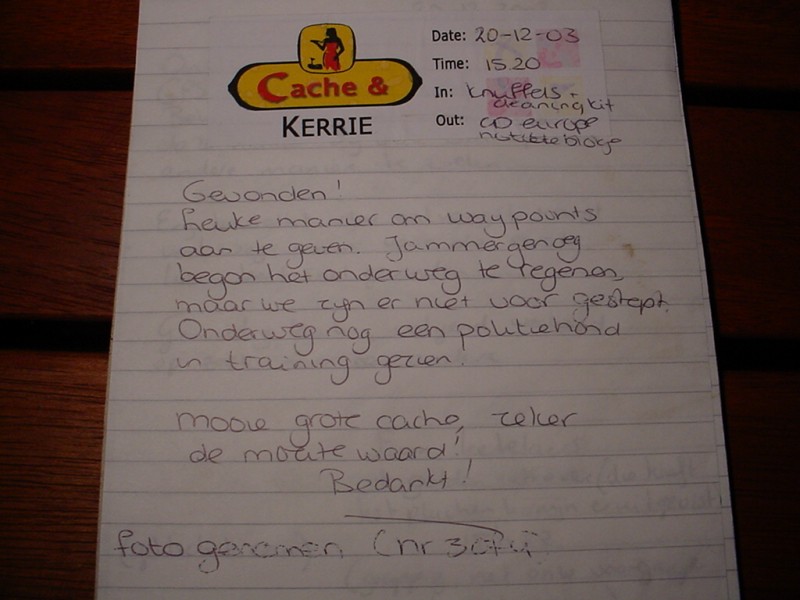 Cache &
KERRIE
Date: 20-12-03
Time: 15.20
In: Knuffels +
cleaningkit
Out: CD europe
notitieblokje
Gevonden!
Leuke manier om waypoints
aan te geven. Jammergenoeg
begon het onderweg te regenen,
maar we zyn er niet voor gestopt.
Onderweg nog een politiehond
in training gezien!
Mooie grote cache, zeker
de moeite waard!
Bedankt!
foto genomen (nr 3